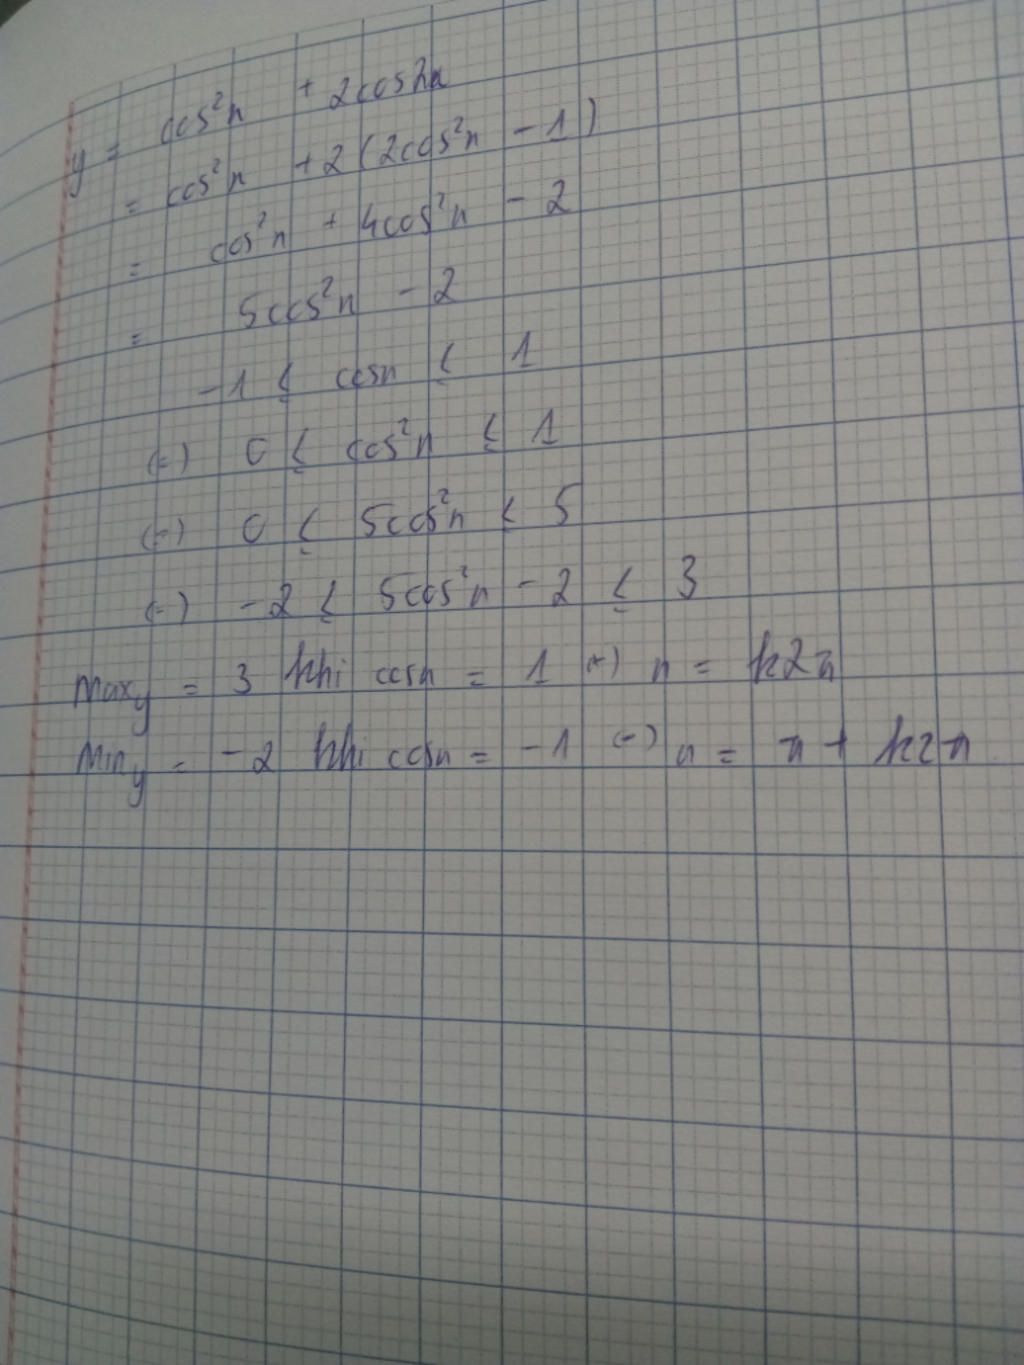 y = cos²x + 2cos2x
= cos²x + 2(2cos²x - 1)
= cos²x + 4cos²x - 2
= 5cos²x - 2
-1 ≤ cosx ≤ 1
(=) 0 ≤ cos²x ≤ 1
(=) 0 ≤ 5cos²x ≤ 5
(=) -2 ≤ 5cos²x - 2 ≤ 3
Max_y = 3 khi cosx = 1 (=) x = k2π
Min_y = -2 khi cosx = -1 (=) x = π + k2π